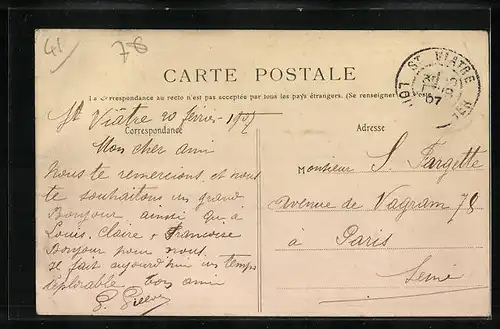 41
78
CARTE POSTALE
La Correspondance au recto n'est pas acceptée par tous les pays étrangers. (Se renseigner
ST VIATRE
LOIR
CHER
07
St Viâtre 20 février 1907
Correspondance
Adresse
Mon cher ami
Nous te remercions et nous
te souhaitons un grand
Bonjour ainsi qu'à
Louis, Claire & Francoise
Bonjour pour nous
il fait aujourd'hui un temps
déplorable. Ton ami
Monsieur S. Fargette
avenue de Vagram 78
à Paris
Seine